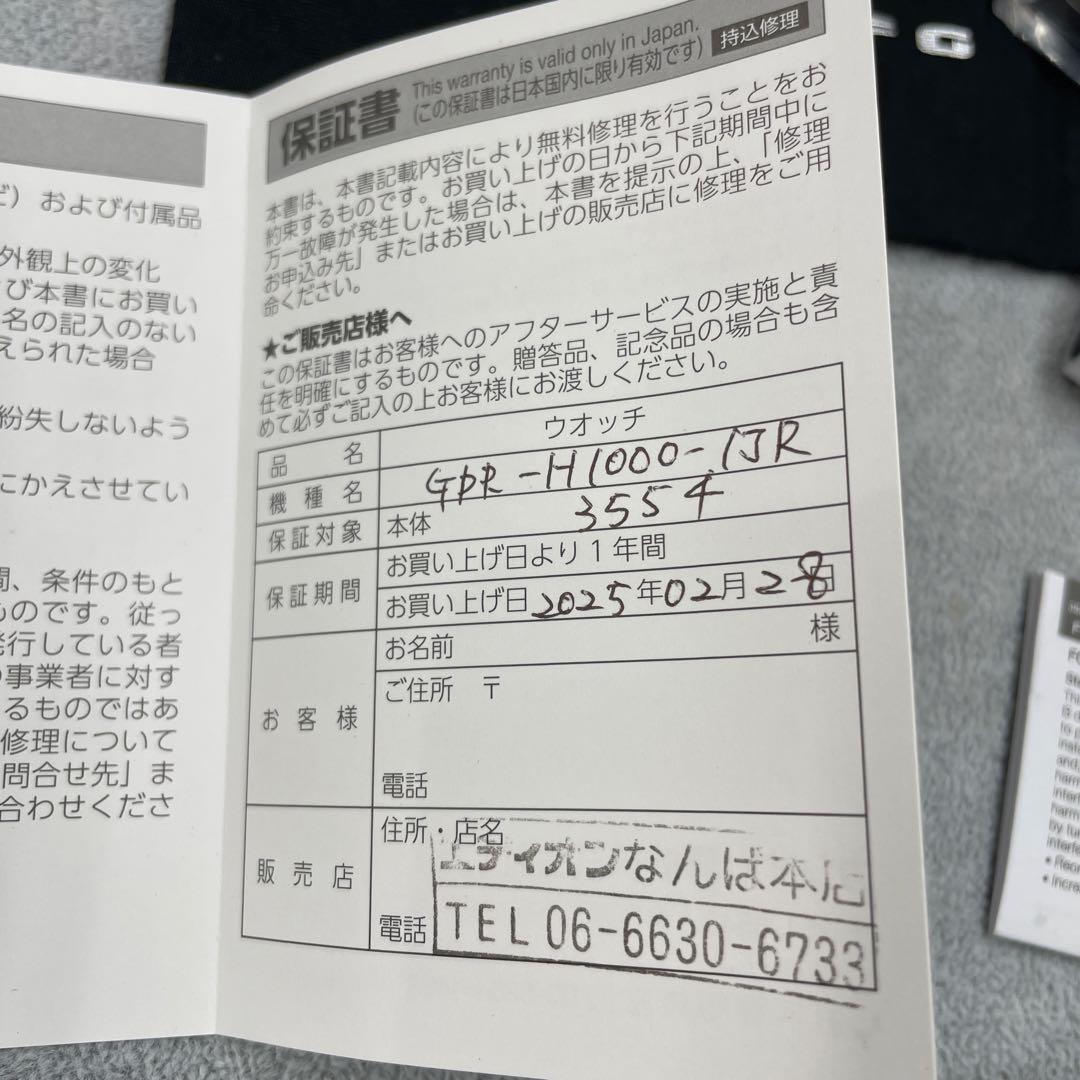 だ）および付属品
外観上の変化
び本書にお買い
名の記入のない
えられた場合
紛失しないよう
にかえさせてい
間、条件のもと
ものです。従っ
発行している者
の事業者に対す
るものではあ
修理について
問合せ先」ま
合わせくださ
保証書
This warranty is valid only in Japan.
(この保証書は日本国内に限り有効です)
持込修理
本書は、本書記載内容により無料修理を行うことをお
約束するものです。お買い上げの日から下記期間中に
万一故障が発生した場合は、本書を提示の上、「修理
お申込み先」またはお買い上げの販売店に修理をご用
命ください。
★ご販売店様へ
この保証書はお客様へのアフターサービスの実施と責
任を明確にするものです。贈答品、記念品の場合も含
めて必ずご記入の上お客様にお渡しください。
品名 ウオッチ
機種名 GPR-H1000-1JR
3554
保証対象 本体
保証期間 お買い上げ日より1年間
お買い上げ日 2025年02月28日
お客様 お名前 様
ご住所 〒
電話
販売店 住所・店名
エディオンなんば本店
電話 TEL 06-6630-6733
G